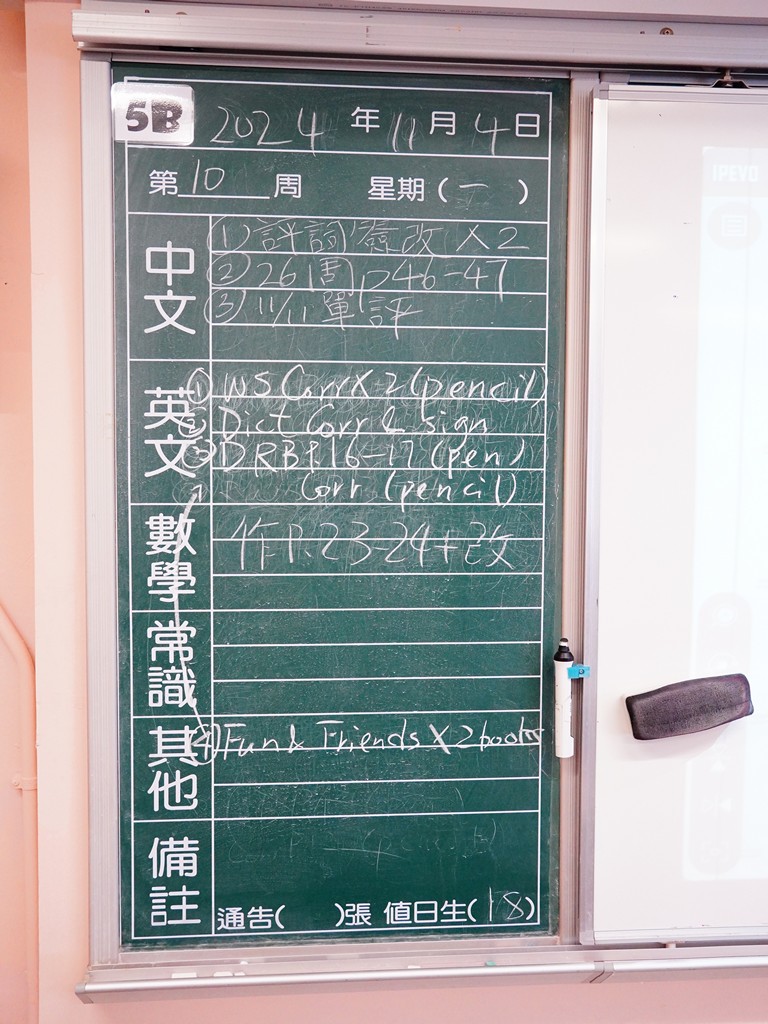 5B 2024年11月4日
第10周 星期(一)
中文
①評詞簽改×2
②26周P46-47
③11/11單評
英文
①WS Corr×2(pencil)
②Dict Corr & sign
③DRBP.16-17(pen)
Corr (pencil)
數學
作P.23-24+改
常識
其他
④Fun & Friends×2books
備註
通告( )張 值日生(18)
IPEVO